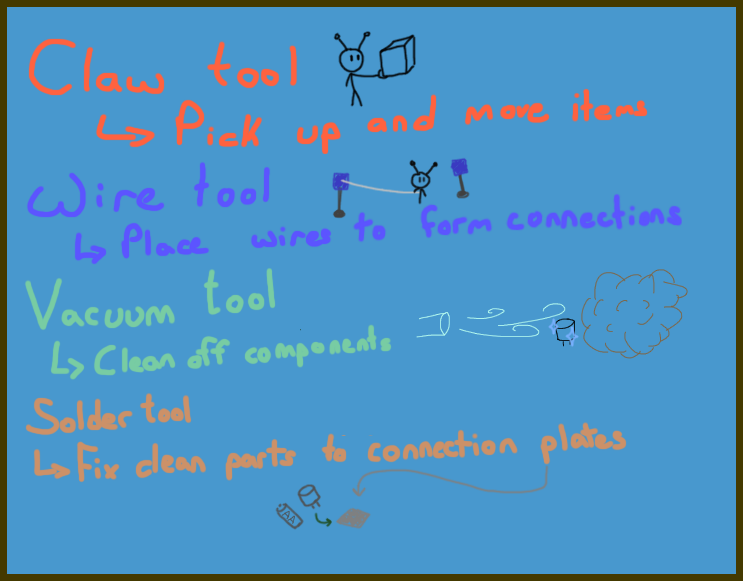 Claw tool
↳ Pick up and move items
Wire tool
↳ Place wires to form connections
Vacuum tool
↳ Clean off components
Solder tool
↳ Fix clean parts to connection plates
AA